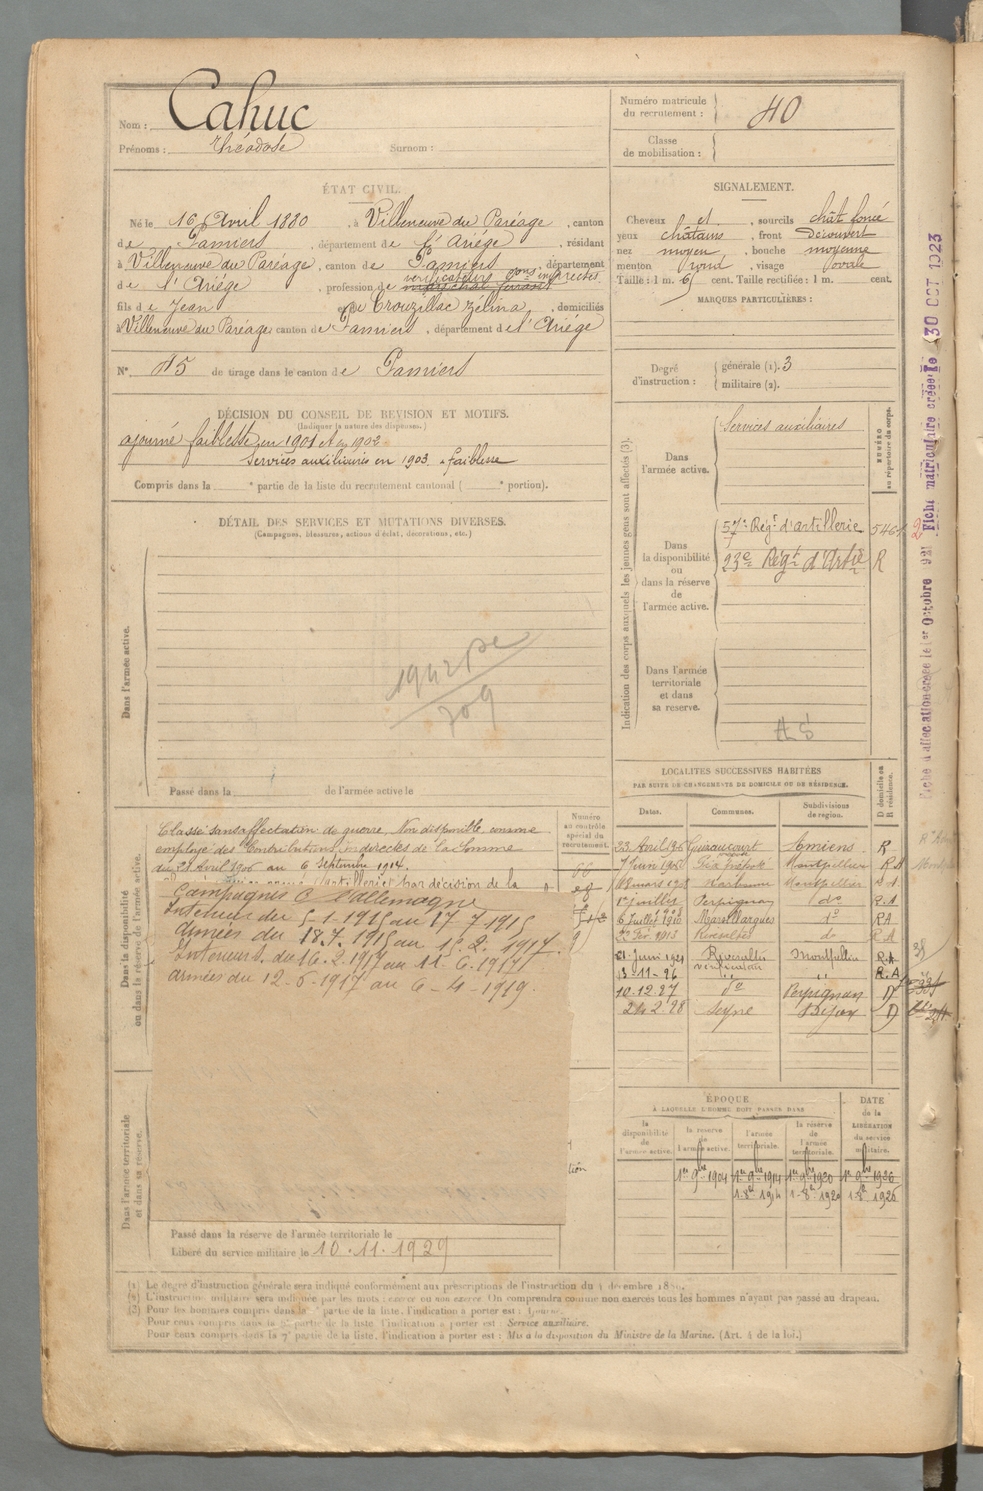 Nom : Cahuc
Prénoms : Théodose Surnom :
Numéro matricule
du recrutement : 40
Classe
de mobilisation :
ÉTAT CIVIL.
Né le 16 Avril 1880, à Villeneuve du Paréage, canton
de Pamiers, département de l'Ariége, résidant
à Villeneuve du Paréage, canton de Pamiers, département
de l'Ariége, profession de
fils de Jean et de Crouzillac Zélina, domiciliés
à Villeneuve du Paréage canton de Pamiers, département de l'Ariége
N° 45 de tirage dans le canton de Pamiers
SIGNALEMENT.
Cheveux et, sourcils chât foncé
yeux châtains, front découvert
nez moyen, bouche moyenne
menton rond, visage ovale
Taille : 1 m. cent. Taille rectifiée : 1 m. cent.
MARQUES PARTICULIÈRES :
Degré
d'instruction :
générale (1). 3
militaire (2).
DÉCISION DU CONSEIL DE REVISION ET MOTIFS.
(Indiquer la nature des dispenses.)
ajourné faiblesse en 1901 et en 1902
Services auxiliaires en 1903 faiblesse
Compris dans la e partie de la liste du recrutement cantonal ( e portion).
DÉTAIL DES SERVICES ET MUTATIONS DIVERSES.
(Campagnes, blessures, actions d'éclat, décorations, etc.)
Dans l'armée active.
Passé dans la de l'armée active le
Indication des corps auxquels les jeunes gens sont affectés (3).
Dans
l'armée active.
Services auxiliaires
NUMÉRO
au répertoire du corps.
Dans
la disponibilité
ou
dans la réserve
de
l'armée active.
57e Régt d'artillerie
23e Régt d'Artie R
Dans l'armée
territoriale
et dans
sa réserve.
Fiche matriculaire créée le 30 OCT 1923
LOCALITÉS SUCCESSIVES HABITÉES
PAR SUITE DE CHANGEMENTS DE DOMICILE OU DE RÉSIDENCE.
Dates. Communes. Subdivisions
de région.
D domicile ou
R résidence.
Amiens R
Montpellier R A
18 mars Narbonne Montpellier
1er juillet Perpignan do R A
6 Juillet 1910 Marsillargues do RA
Rivesaltes do R A
21 Juin 1921 Rivesaltes Montpellier R A
13-11-26 R. A
10.12.27 do Perpignan D
24.2.28 Seyne D
Dans la disponibilité
ou dans la réserve de l'armée active.
Numéro
au contrôle
spécial du
recrutement.
Classé sans affectation de guerre. Non disponible comme
employé des Contributions indirectes de la Somme
du 28 Avril 1906 au 6 Septembre 1914.
d'artillerie par décision de la
Campagnes C l'allemagne
Intérieur du 5-1-1915 au 17-7-1915
armées du 18.7.1915 au 15.2.1917.
Intérieur du 16.2.1917 au 11-6.1917
armées du 12-6-1917 au 6-4-1919.
Dans l'armée territoriale
et dans sa réserve.
Passé dans la réserve de l'armée territoriale le
Libéré du service militaire le 10.11.1929
ÉPOQUE
À LAQUELLE L'HOMME DOIT PASSER DANS
DATE
de la
LIBÉRATION
du service
militaire.
la
disponibilité
de
l'armée active.
la réserve
de
l'armée active.
l'armée
territoriale.
la réserve
de
l'armée
territoriale.
1er 9bre 1904 1er 9bre 1914 1er 9bre 1920 1er 9bre 1926
(1) Le degré d'instruction générale sera indiqué conformément aux prescriptions de l'instruction du 4 décembre 1889.
(2) L'instruction militaire sera indiquée par les mots : exercé ou non exercé. On comprendra comme non exercés tous les hommes n'ayant pas passé au drapeau.
(3) Pour les hommes compris dans la partie de la liste, l'indication à porter est :
Pour ceux compris dans la partie de la liste, l'indication à porter est : Service auxiliaire.
Pour ceux compris dans la 7e partie de la liste, l'indication à porter est : Mis à la disposition du Ministre de la Marine. (Art. 4 de la loi.)